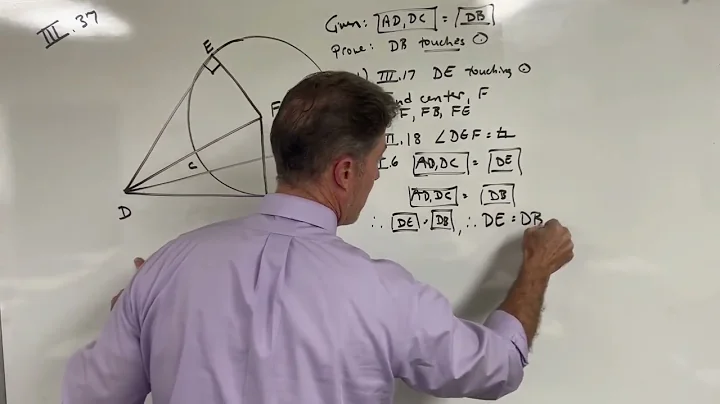 III.37
E
F
C
D
Given: AD, DC = DB
Prove: DB touches ⊙
III.17 DE touching ⊙
center, F
FB, FE
.18 ∠DEF = ⊾
.6 AD, DC = DE
AD, DC = DB
∴ DE = DB, ∴ DE = DB